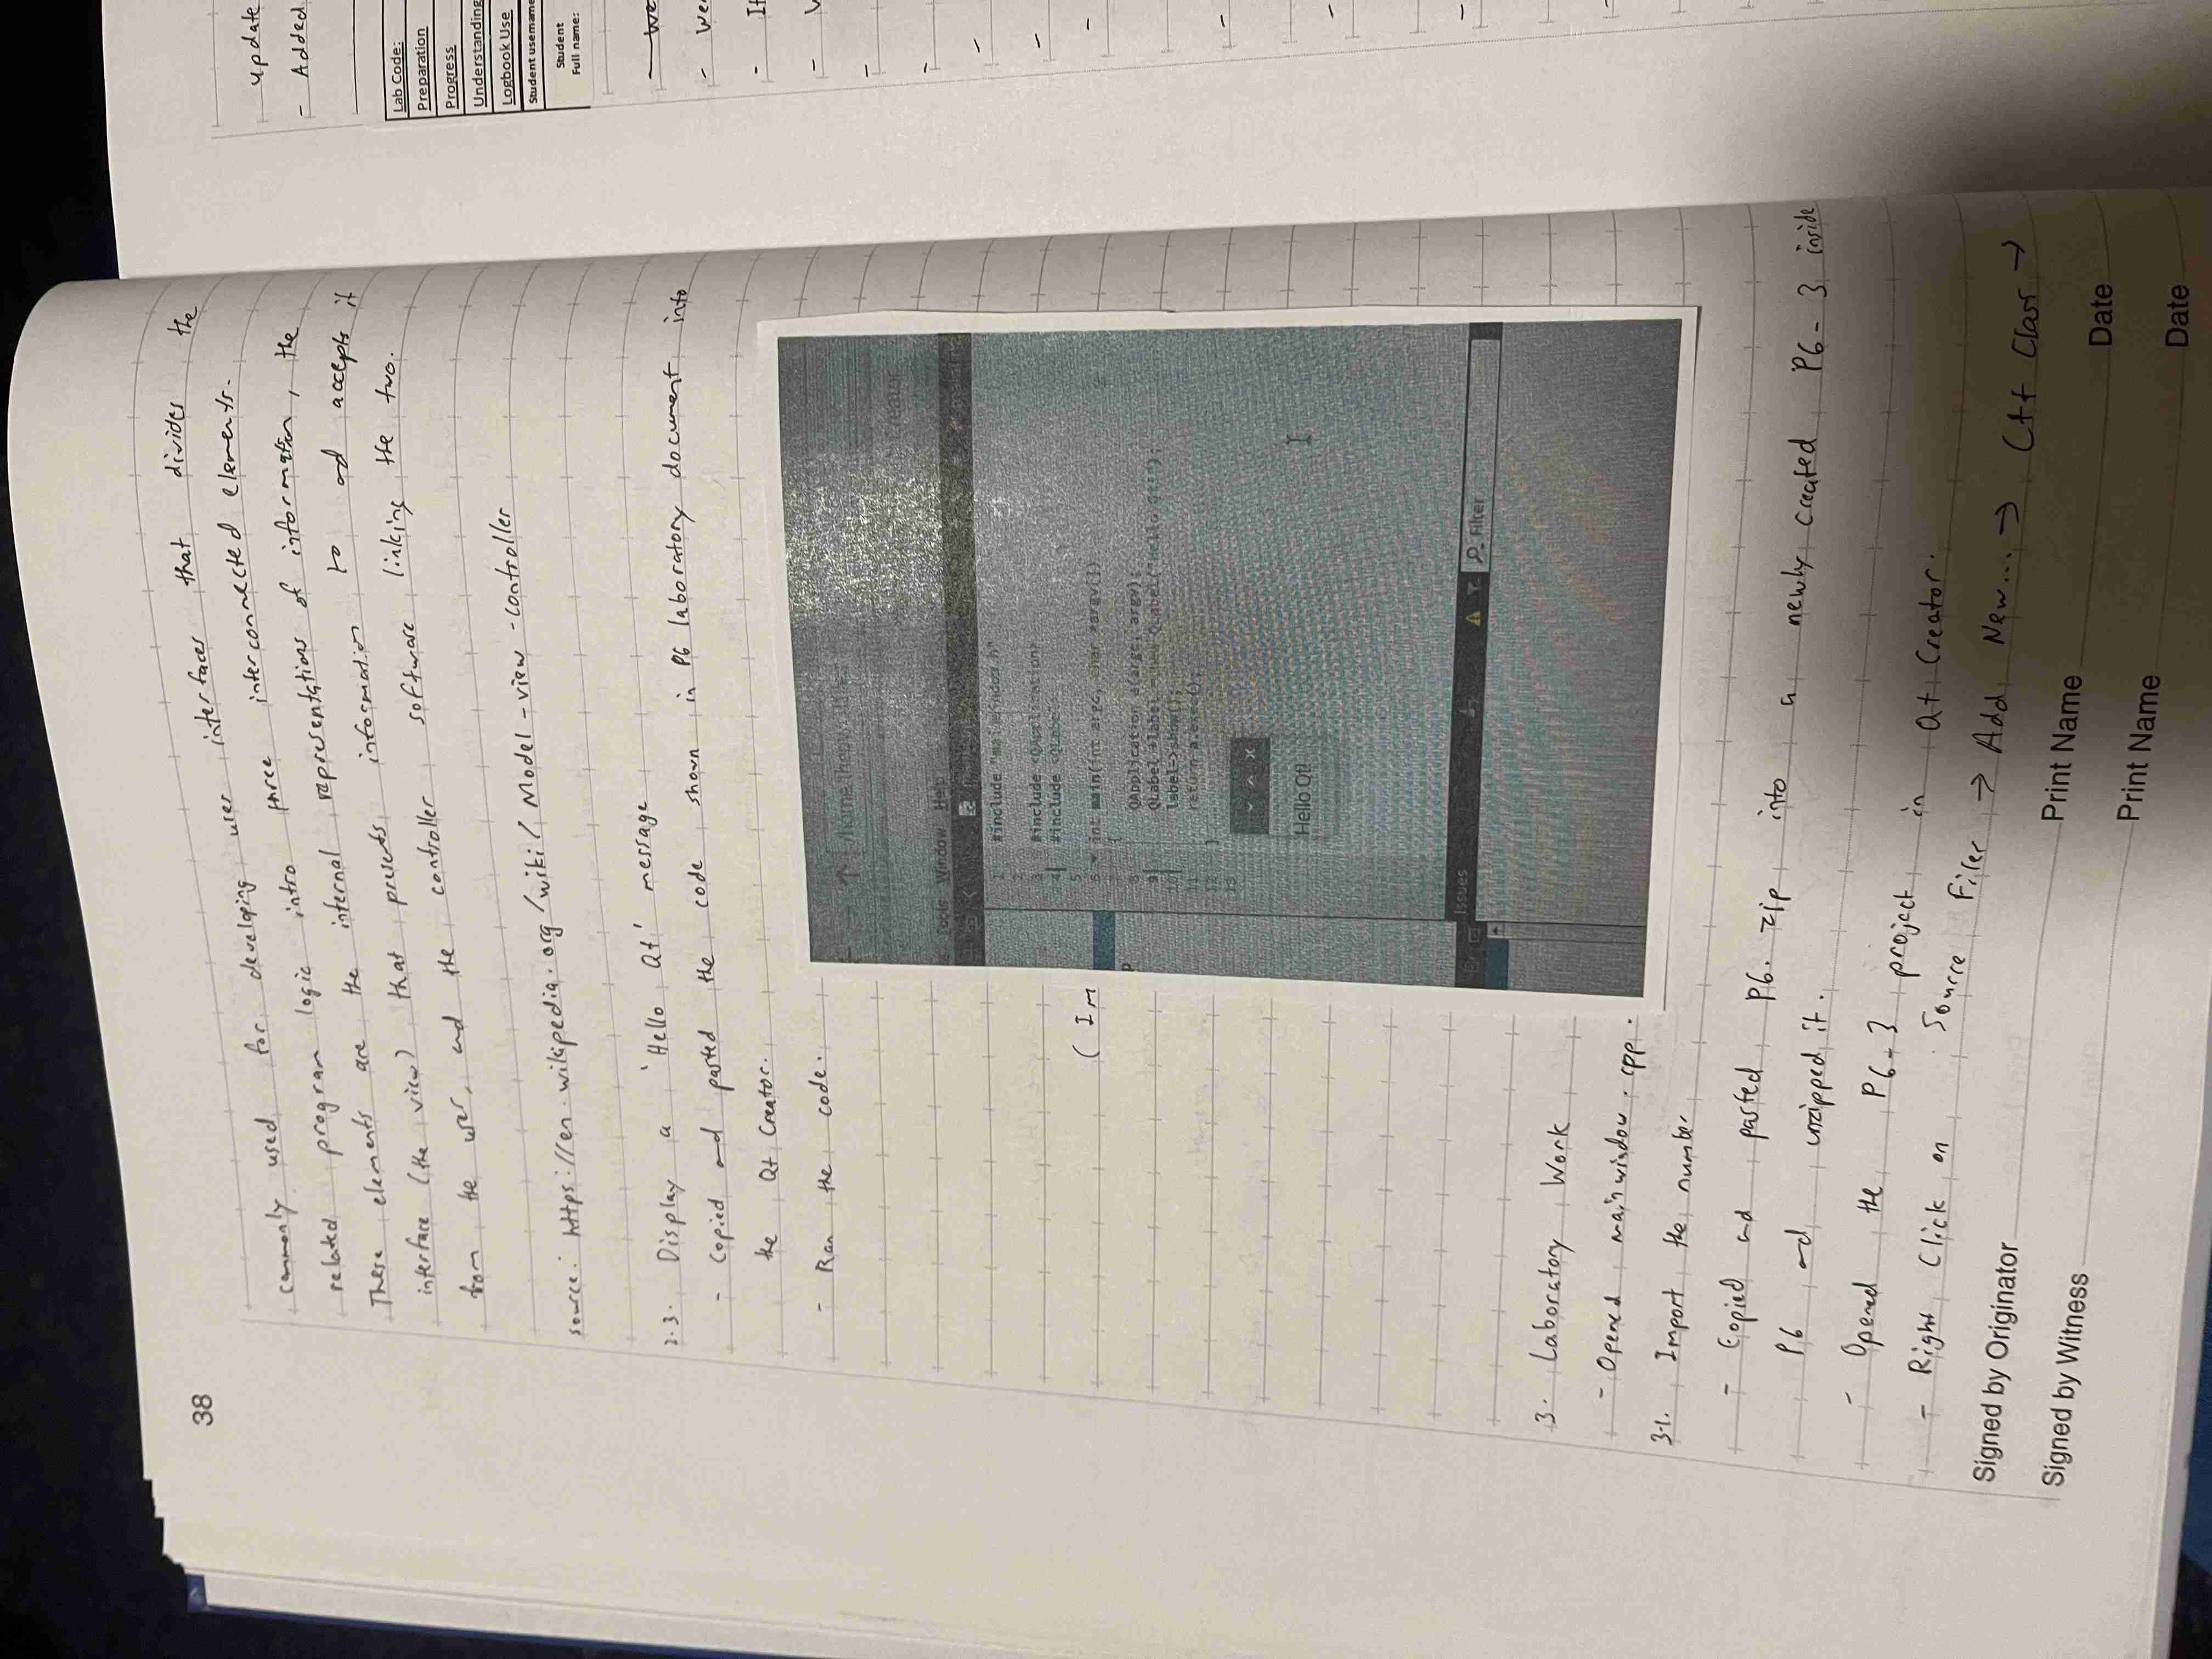 38
commonly used for developing user interfaces that divides the
related program logic intro three interconnected elements.
These elements are the internal representations of information, the
interface (the view) that presents information to and accepts it
from the user, and the controller software linking the two.
source: https://en.wikipedia.org/wiki/Model-view-controller
2.3. Display a 'Hello Qt' message
- Copied and pasted the code shown in P6 laboratory document into
the Qt Creator.
- Ran the code.
(Im
/home/
Creator
Tools Window Help
1 #include "mainwindow.h"
2
3 #include <QApplication>
4 #include <QLabel>
5
6 int main(int argc, char *argv[])
7 {
8 QApplication a(argc, argv);
9 QLabel *label = new QLabel("Hello Qt!");
10 label->show();
11 return a.exec();
12 }
13
Hello Qt!
Issues
Filter
3. Laboratory Work
- Opened mainwindow.cpp.
3.1. Import the number
- Copied and pasted P6.zip into a newly created P6-3 inside
P6 and unzipped it.
- Opened the P6-3 project in Qt Creator.
- Right Click on Source Files → Add New... → C++ Class →
Signed by Originator
Print Name
Date
Signed by Witness
Print Name
Date
update
- Added
Lab Code:
Preparation
Progress
Understanding
Logbook Use
Student username
Student
Full name: